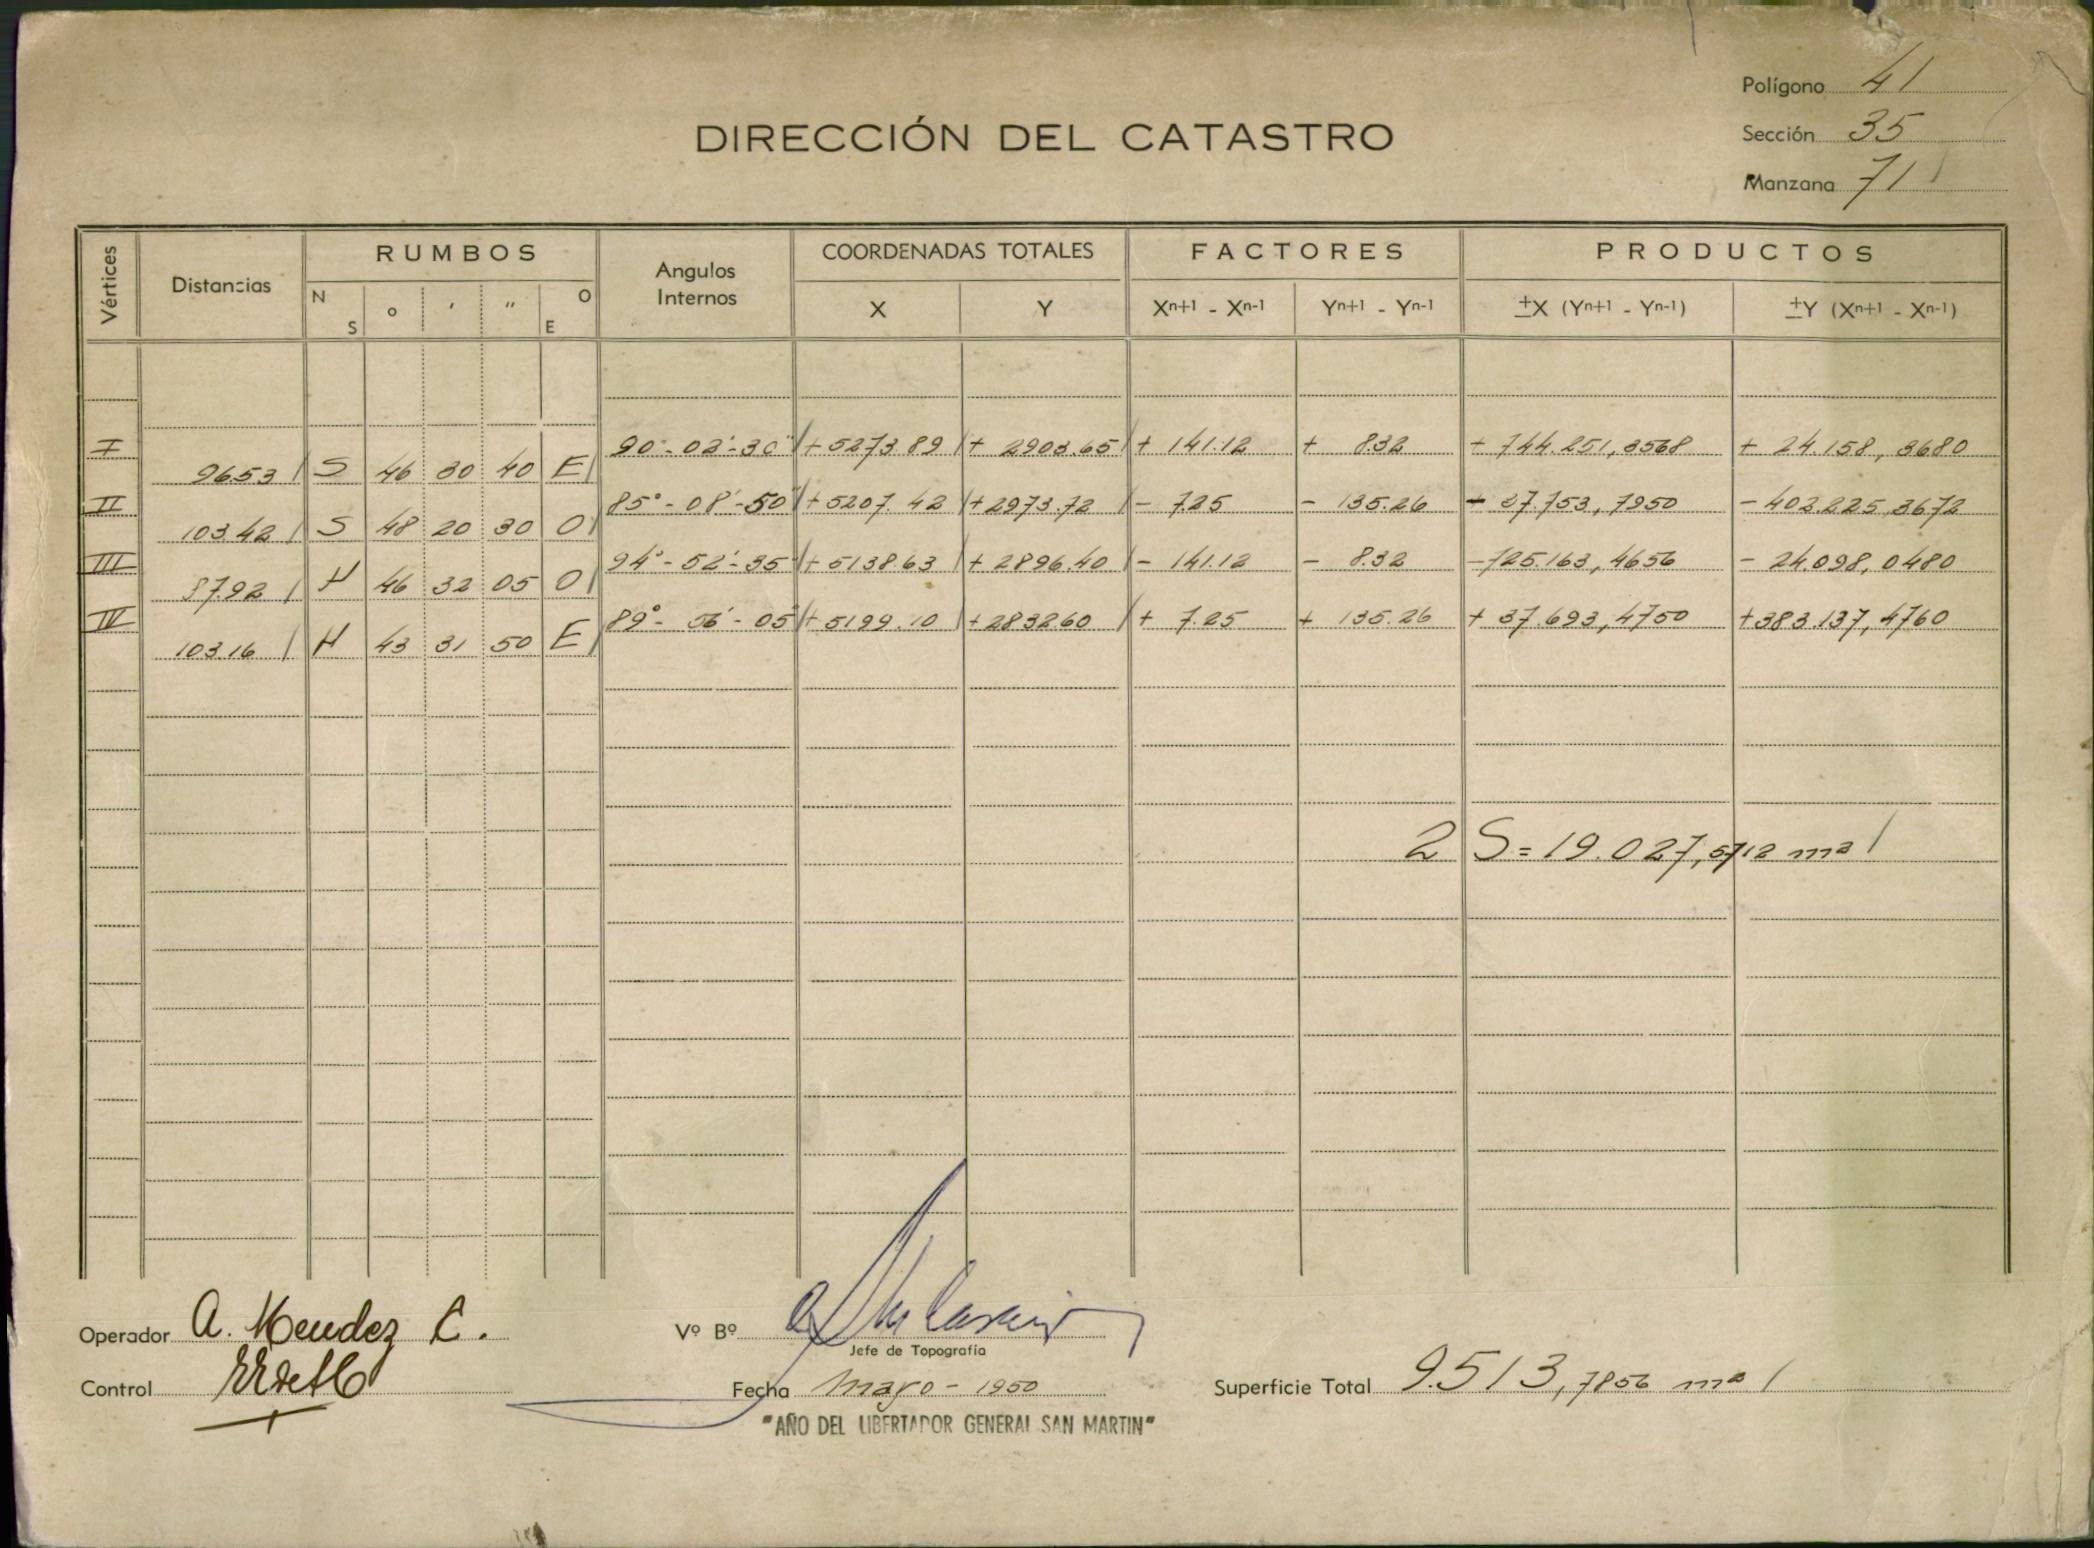 Polígono 41
DIRECCIÓN DEL CATASTRO
Sección 35
Manzana 71
Vértices Distancias RUMBOS Angulos Internos COORDENADAS TOTALES FACTORES PRODUCTOS
N S o ' " O E X Y Xn+1 - Xn-1 Yn+1 - Yn-1 ±X (Yn+1 - Yn-1) ±Y (Xn+1 - Xn-1)
I 90°-02'-30" +5273.89 + 2903.65 + 141.12 + 8.32 + 744.251,3568 + 24.158,3680
96.53 S 46 30 40 E
II 85°-08'-50" +5207.42 +2973.72 - 7.25 - 135.26 - 37.753,7950 - 402.225,3672
103.42 S 48 20 30 O
III 94°-52'-35" +5138.63 + 2896.40 - 141.12 - 8.32 -725.163,4656 - 24.098,0480
87.92 N 46 32 05 O
IV 89°-56'-05" +5199.10 +2832.60 + 7.25 + 135.26 + 37.693,4750 +383.137,4760
103.16 N 43 31 50 E
2 S = 19.027,5712 m2
Operador A. Mendez C.
Vº Bº
Jefe de Topografía
Control
Fecha mayo - 1950
Superficie Total 9.513,7856 m2
"AÑO DEL LIBERTADOR GENERAL SAN MARTIN"